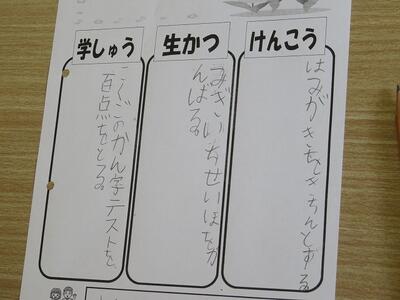 けんこう
はみがきをきちんとする
生かつ
みぎ いちせいほをが
んばる。
学しゅう
こくごのかん字テストを
百点をとる。